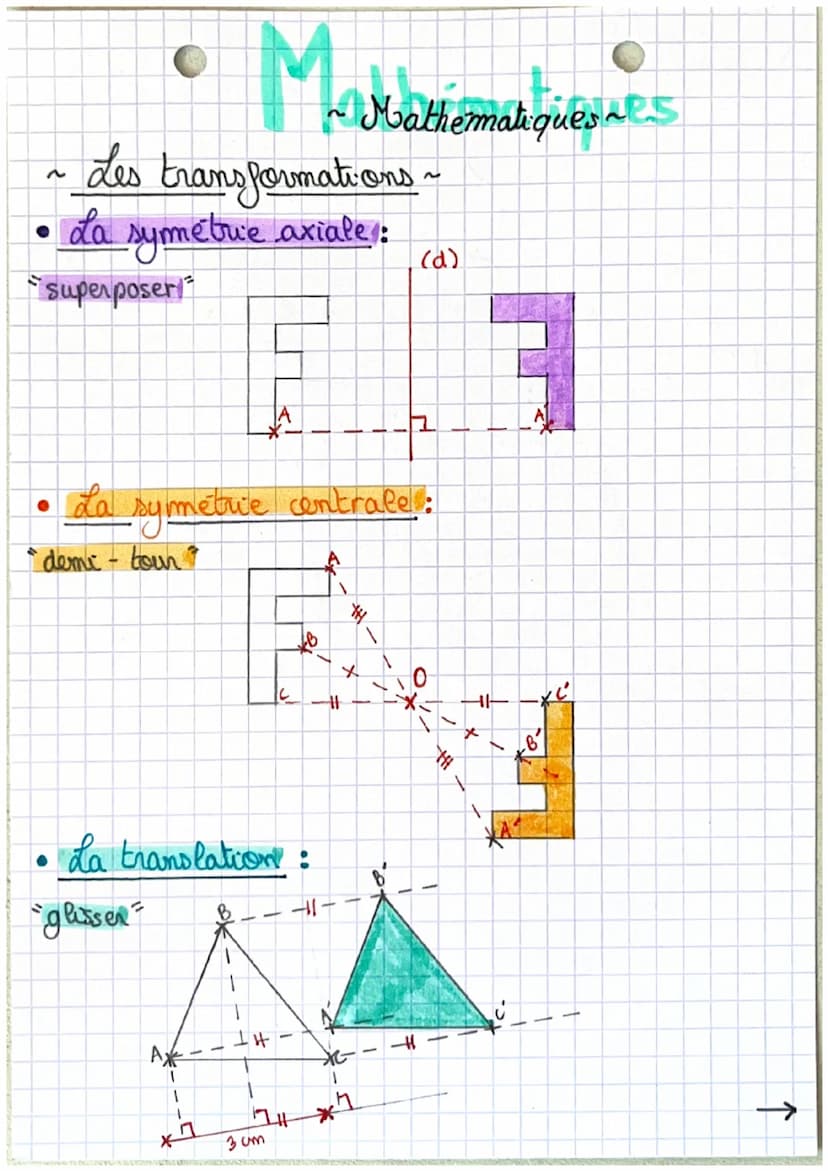 Mathématiques
~ Mathématiques ~
~ Les transformations ~
• La symétrie axiale :
"superposer"
(d)
A
A'
• La symétrie centrale :
"demi - tour"
A
B
O
C
C'
B'
A'
• La translation :
"glisser"
B'
B
A'
C'
A
C
3 cm
→